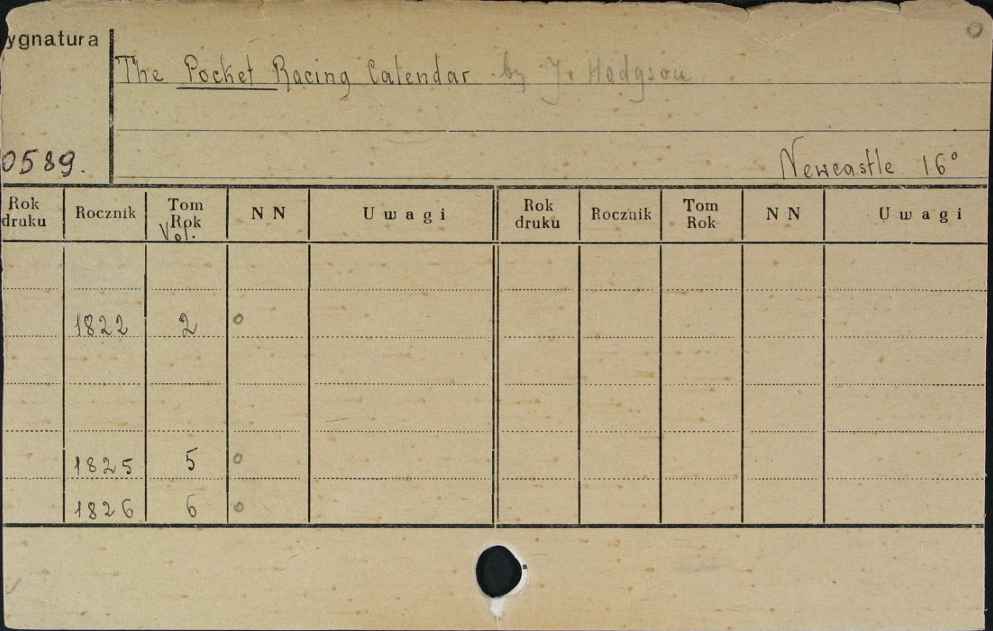 ygnatura
The Pocket Racing Calendar by J. Hodgson
0589.
Newcastle 16°
Rok druku Rocznik Tom Rok NN Uwagi Rok druku Rocznik Tom Rok NN Uwagi
Vol.
1822 2 o
1825 5 o
1826 6 o